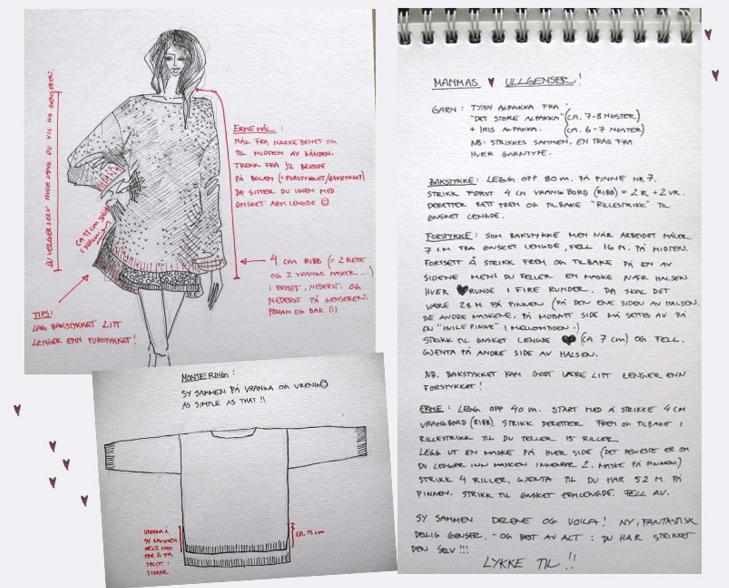 DU VELGER SELV HVOR LANG DU VIL HA GENSEREN.
ERMEMÅL:
MÅL FRA NAKKEBENET OG
TIL MIDTEN AV HÅNDEN.
TREKK FRA 1/2 BREDDE
PÅ BOLEN (=FORSTYKKET/BAKSTYKKET)
DA SITTER DU IGJEN MED
ØNSKET ARM LENGDE
CA 11 CM SPLITT
I SIDEN
4 CM RIBB (= 2 RETTE
OG 2 VRANGE MASKER ...)
I ERMET, NEDERST. OG
NEDERST PÅ GENSEREN.
FORAN OG BAK (!)
TIPS:
LAG BAKSTYKKET LITT
LENGER ENN FORSTYKKET!
MONTERING:
SY SAMMEN PÅ VRANGA OG VRENG
AS SIMPLE AS THAT !!
SY SAMMEN
SPLITT I
SIDENE
CA. 11 CM
MAMMAS ULLGENSER!
GARN: TYNN ALPAKKA FRA
"DET STORE ALPAKKA" (CA. 7-8 NØSTER)
+ IRIS ALPAKKA. (CA. 6-7 NØSTER)
NB: STRIKKES SAMMEN, EN TRÅD FRA
HVER GARNTYPE.
BAKSTYKKE: LEGG OPP 80 M. PÅ PINNE NR 7.
STRIKK FØRST 4 CM VRANGBORD (RIBB) = 2 R + 2 VR.
DERETTER RETT FREM OG TILBAKE "RILLESTRIKK" TIL
ØNSKET LENGDE.
FORSTYKKE: SOM BAKSTYKKE MEN NÅR ARBEIDET MÅLER
7 CM FRA ØNSKET LENGDE, FELL 16 M. PÅ MIDTEN.
FORTSETT Å STRIKK FREM OG TILBAKE PÅ EN AV
SIDENE MENS DU FELLER EN MASKE NÆR HALSEN
HVER RUNDE I FIRE RUNDER. DA SKAL DET
VÆRE 28 M PÅ PINNEN (PÅ DEN ENE SIDEN AV HALSEN.
DE ANDRE MASKENE, PÅ MOTSATT SIDE MÅ SETTES AV PÅ
EN "HVILE PINNE" I MELLOMTIDEN.)
STRIKK TIL ØNSKET LENGDE (CA 7 CM) OG FELL.
GJENTA PÅ ANDRE SIDE AV HALSEN.
NB. BAKSTYKKET KAN GODT VÆRE LITT LENGER ENN
FORSTYKKET!
ERME: LEGG OPP 40 M. START MED Å STRIKKE 4 CM
VRANGBORD (RIBB). STRIKK DERETTER FREM OG TILBAKE I
RILLESTRIKK TIL DU TELLER 15 RILLER.
LEGG UT EN MASKE PÅ HVER SIDE (DET PENESTE ER OM
DU LEGGER INN MASKEN INNENFOR 2. MASKE PÅ PINNEN)
STRIKK 4 RILLER, GJENTA TIL DU HAR 52 M PÅ
PINNEN. STRIKK TIL ØNSKET ERMLENGDE. FELL AV.
SY SAMMEN DELENE OG VOILA! NY, FANTASTISK
DEILIG GENSER. - OG BEST AV ALT: DU HAR STRIKKET
DEN SELV !!!
LYKKE TIL !!